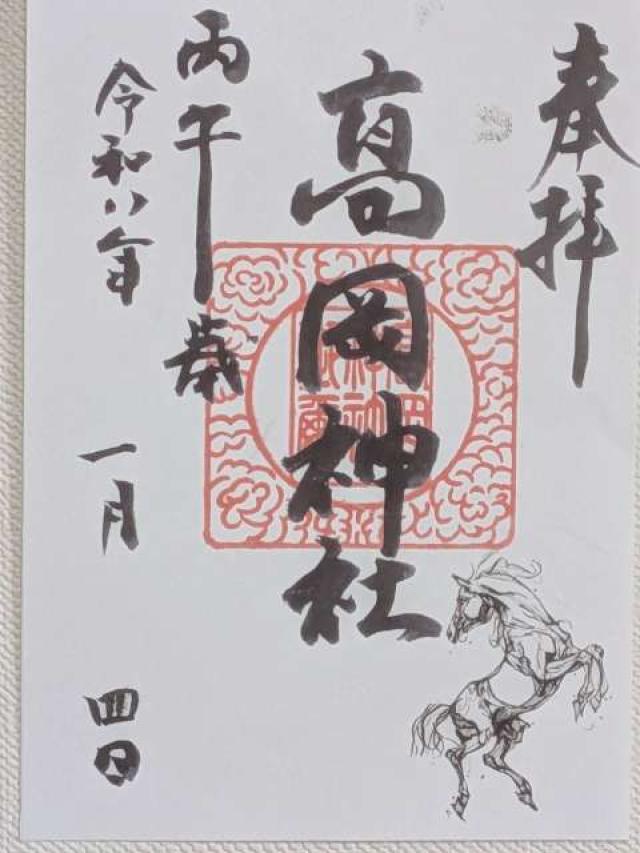 奉拝
高岡神社
丙午歳
令和八年 一月 四日